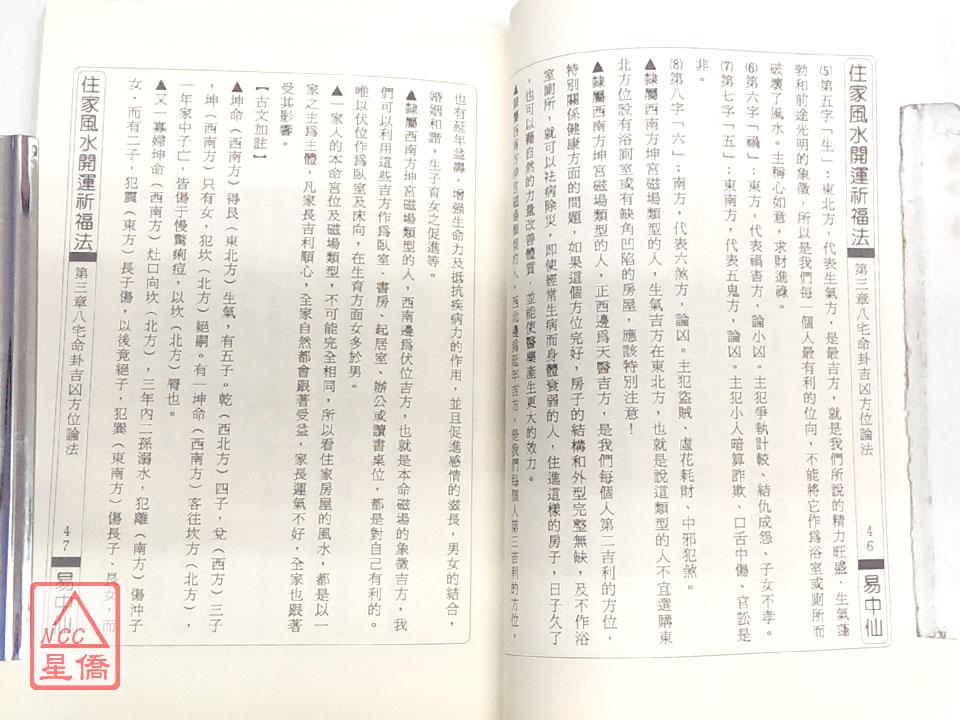 住家風水開運祈福法
第三章八宅命卦吉凶方位論法
46
易中仙
⑸第五字「生」：東北方，代表生氣方，是最吉方，就是我們所說的精力旺盛．生氣蓬
勃和前途光明的象徵，所以是我們每一個人最有利的位向，不能將它作為浴室或廁所而
破壞了風水。主稱心如意，求財進祿。
⑹第六字「禍」：東方，代表禍害方，論小凶。主犯爭執計較、結仇成怨、子女不孝。
⑺第七字「五」：東南方，代表五鬼方，論凶。主犯小人暗算詐欺、口舌中傷、官訟是
非。
⑻第八字「六」：南方，代表六煞方，論凶。主犯盜賊、虛花耗財、中邪犯煞。
▲隸屬西南方坤宮磁場類型的人，生氣吉方在東北方，也就是說這類型的人不宜選購東
北方位設有浴廁室或有缺角凹陷的房屋，應該特別注意！
▲隸屬西南方坤宮磁場類型的人，正西邊為天醫吉方，是我們每個人第二吉利的方位，
特別關係健康方面的問題，如果這個方位完好，房子的結構和外型完整無缺，及不作浴
室廁所，就可以祛病除災，即使經常生病而身體衰弱的人，住進這樣的房子，日子久了
，也可以藉自然的力量改善體質，並能使醫藥產生更大的效力。
▲隸屬西南方坤宮磁場類型的人，西北邊為延年吉方，是我們每個人第三吉利的方位，
也有延年益壽，增強生命力及抵抗疾病力的作用，並且促進感情的滋長，男女的結合，
婚姻和諧，生子育女之促進等。
▲隸屬西南方坤宮磁場類型的人，西南邊為伏位吉方，也就是本命磁場的象徵吉方，我
們可以利用這些吉方作為臥室、書房、起居室、辦公或讀書桌位，都是對自己有利的。
唯以伏位作為臥室及床向，在生育方面女多於男。
▲一家人的本命宮位及磁場類型，不可能完全相同，所以看住家房屋的風水，都是以一
家之主為主體，凡家長吉利順心，全家自然都會跟著受益，家長運氣不好，全家也跟著
受其影響。
【古文加註】
▲坤命（西南方）得艮（東北方）生氣，有五子。乾（西北方）四子，兌（西方）三子
，坤（西南方）只有女，犯坎（北方）絕嗣。有一坤命（西南方）客往坎方（北方），
一年家中子亡，皆傷于慢驚痢痘，以坎（北方）腎也。
▲又一寡婦坤命（西南方）灶口向坎（北方），三年內二孫溺水，犯離（南方）傷沖子
女，而有二子，犯震（東方）長子傷，以後竟絕子，犯巽（東南方）傷長子、長女，而
住家風水開運祈福法
第三章八宅命卦吉凶方位論法
47
易中仙
NCC
星僑